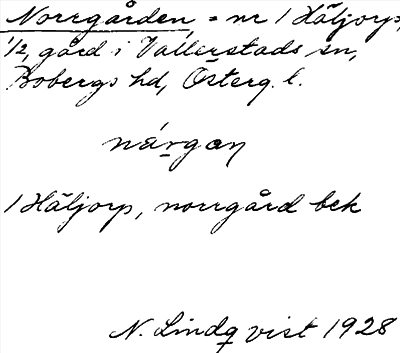 Norrgården, = nr 1 Häljorp,
1/2, gård i Vallerstads sn,
Bobergs hd, Österg. l.
nárgan
1 Häljorp, norrgård bek
N. Lindqvist 1928